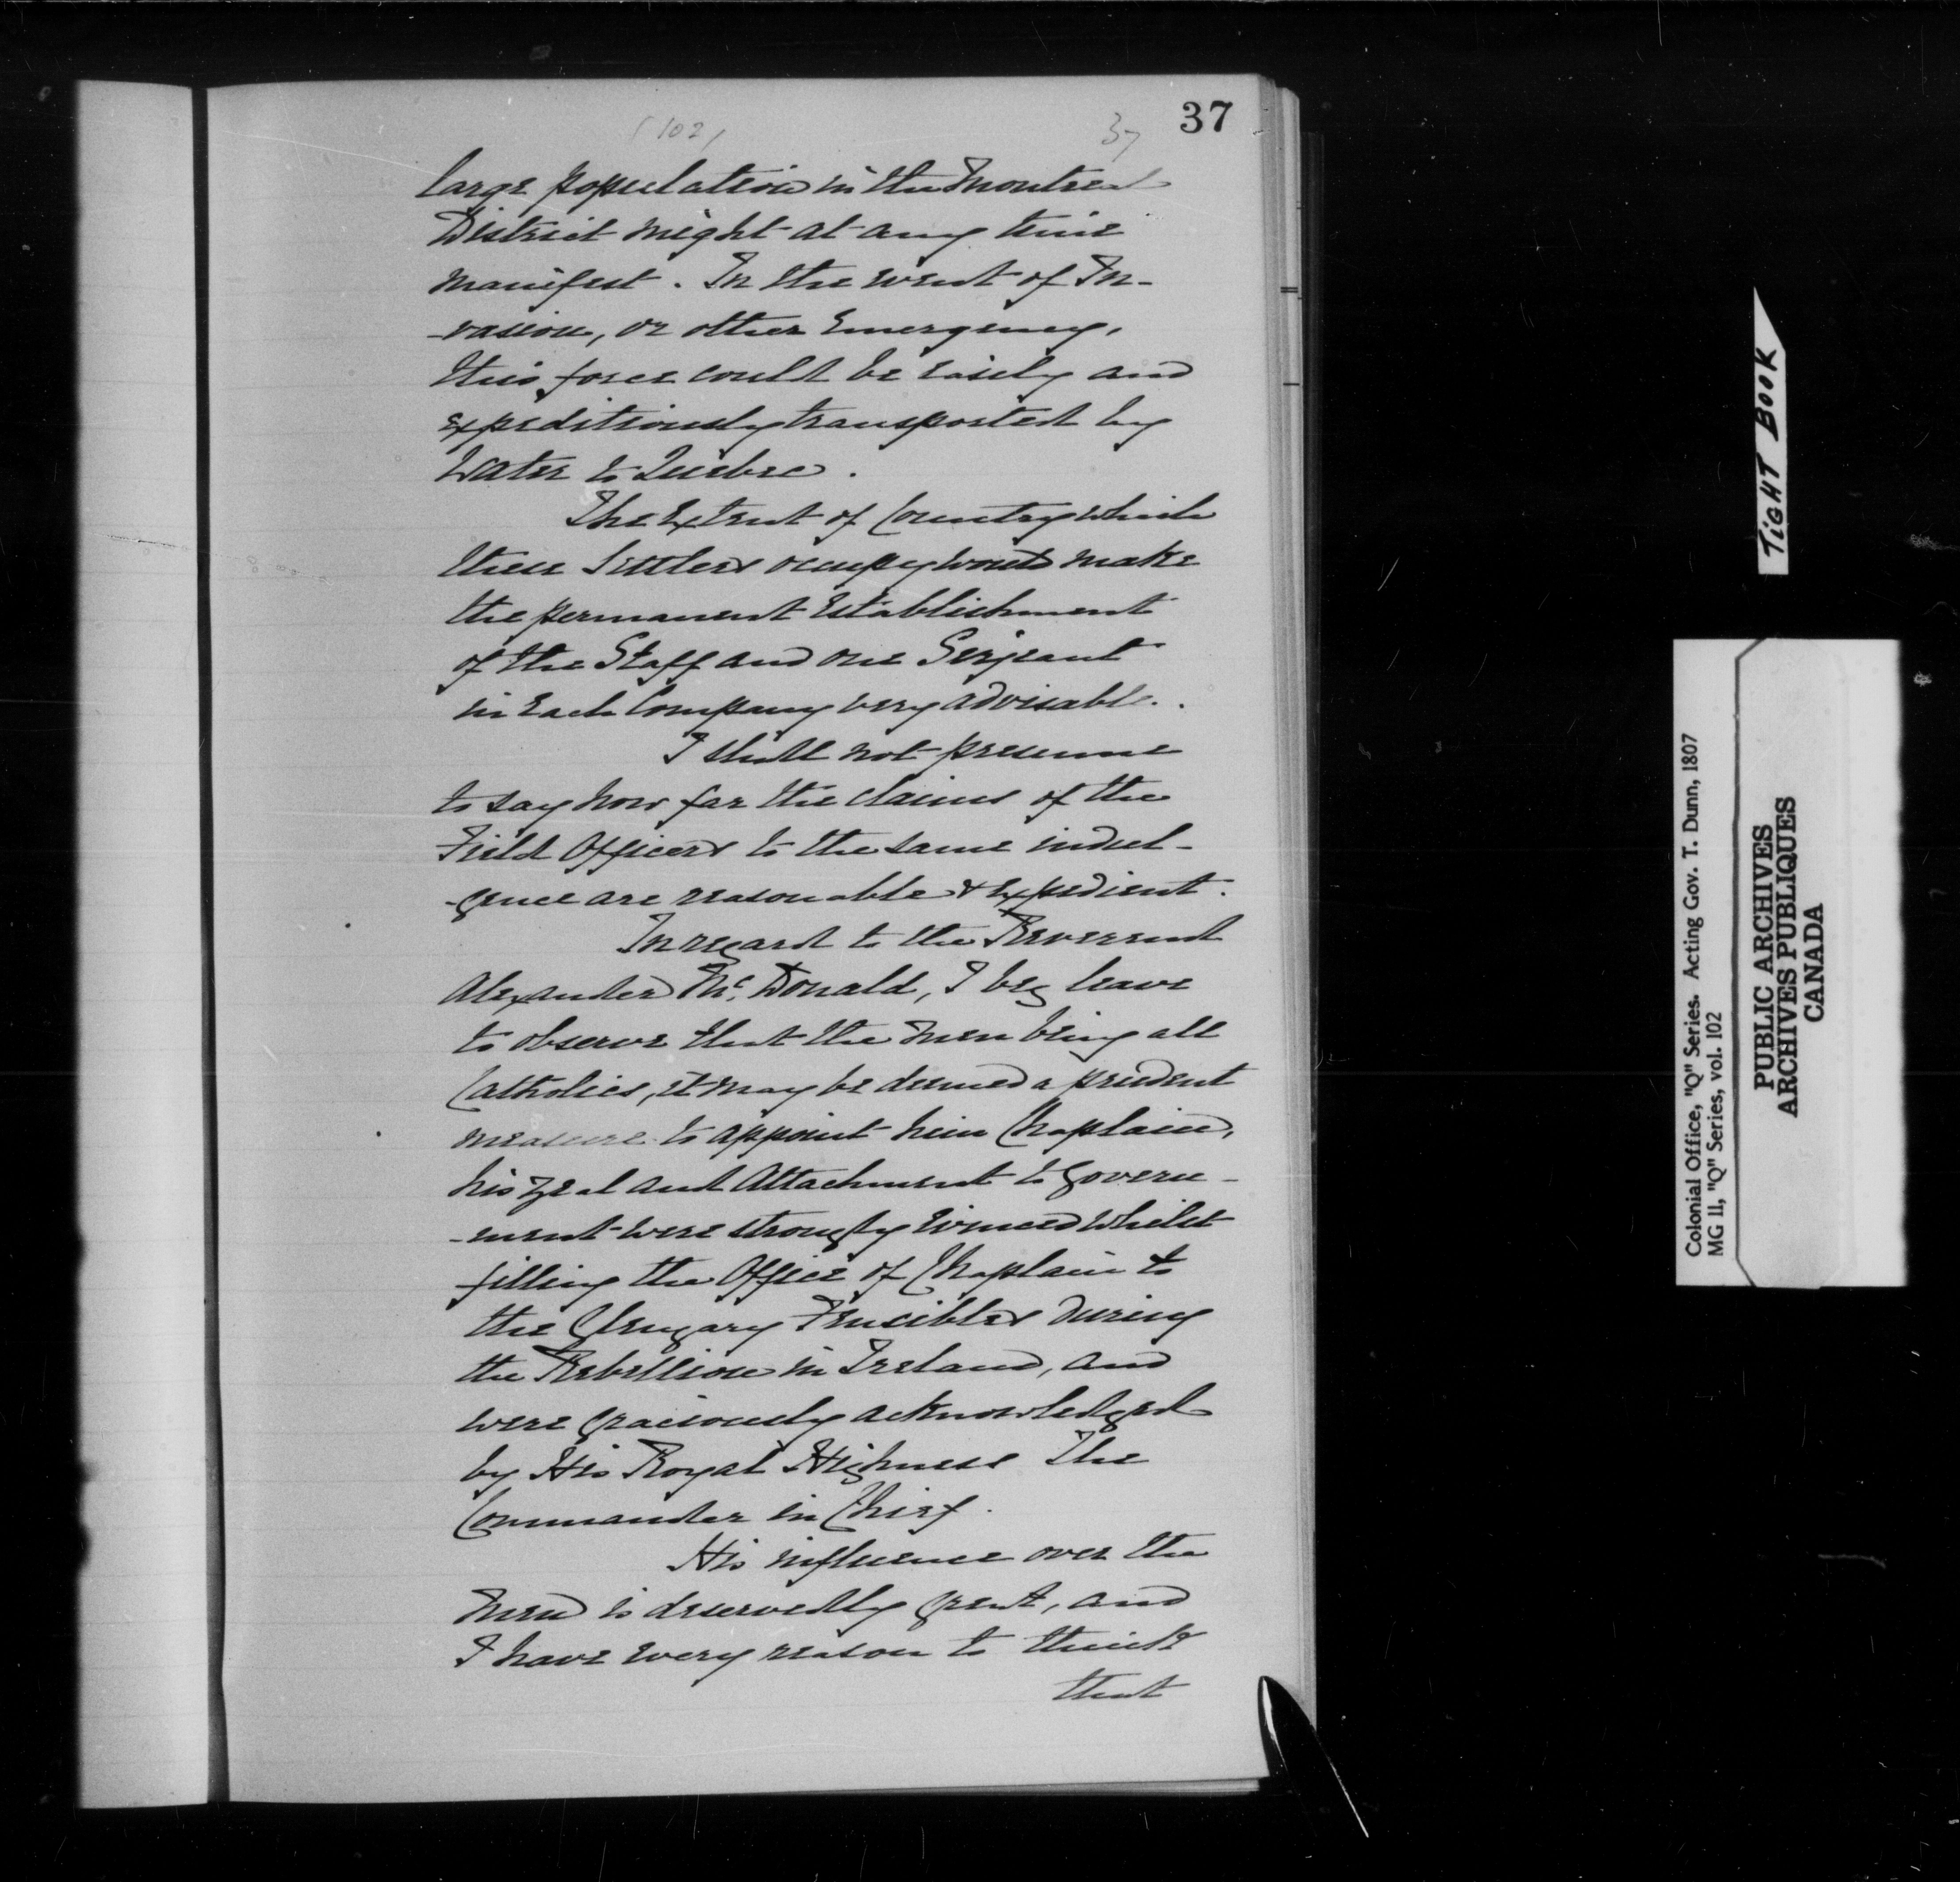 37
(102)
37
large population in the Montreal
District might at any time
manifest. In the event of In-
-vasion, or other Emergency,
this force could be easily and
expeditiously transported by
Water to Quebec.
The Extent of Country which
these Settlers occupy would make
the permanent Establishment
of the Staff and one Serjeant
in Each Company very advisable.
I shall not presume
to say how far the claims of the
Field Officers to the same indul-
-gence are reasonable & Expedient.
In regard to the Reverend
Alexander Mc. Donald, I beg leave
to observe that the men being all
Catholics, it may be deemed a prudent
measure to appoint him Chaplain,
his zeal and Attachment to Govern-
-ment were strongly Evinced whilst
filling the Office of Chaplain to
the Glengary Fencibles During
the Rebellion in Ireland, and
were graciously acknowledged
by His Royal Highness The
Commander in Chief.
His influence over the
Men is deservedly great, and
I have every reason to think
that
TIGHT BOOK
Colonial Office, "Q" Series. Acting Gov. T. Dunn, 1807
MG 11, "Q" Series, vol. 102
PUBLIC ARCHIVES
ARCHIVES PUBLIQUES
CANADA